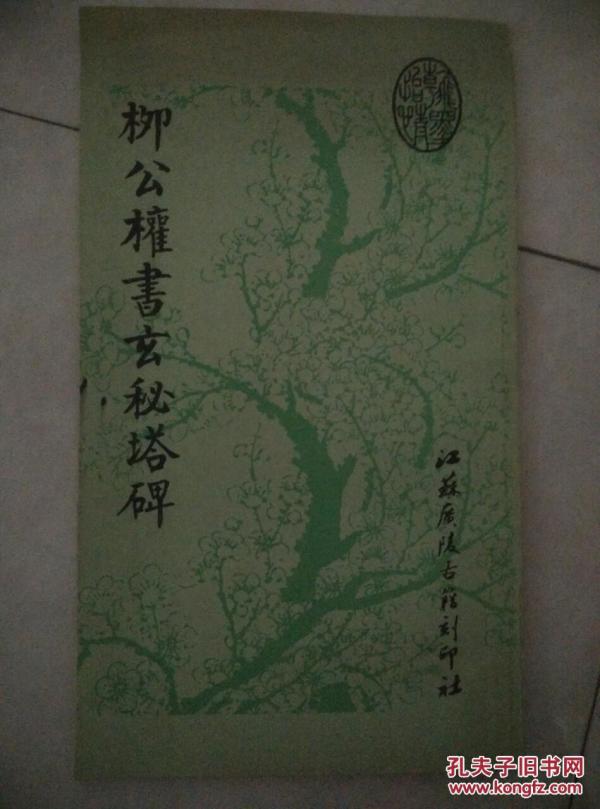 柳公權書玄秘塔碑
江蘇廣陵古籍刻印社
孔夫子旧书网
www.kongfz.com